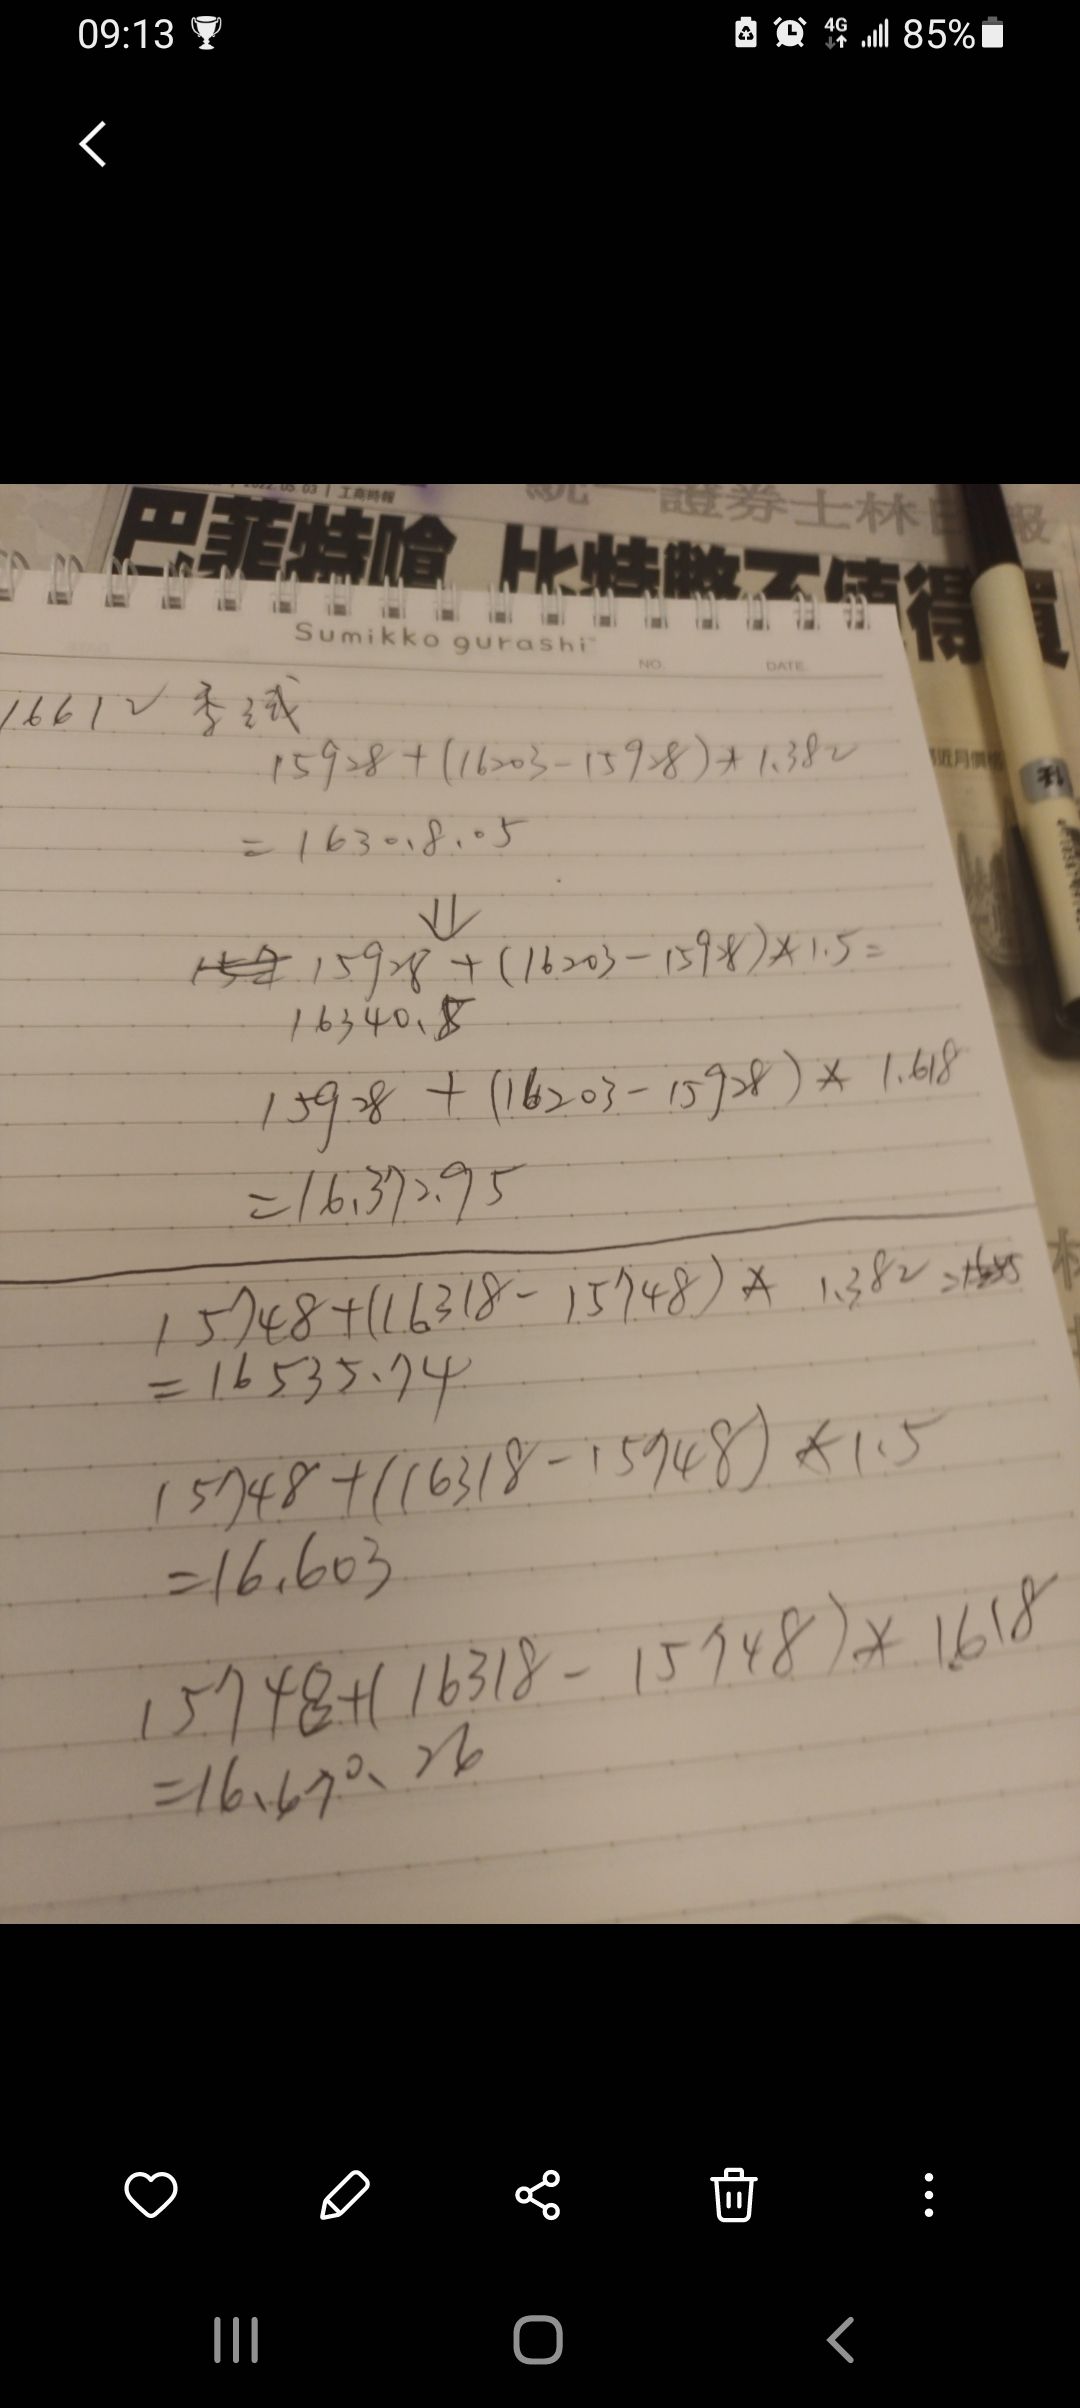 09:13
4G
85%
2022.05 03 | 工商時報
統一證券士林日報
巴菲特哈 比特幣不值得買
Sumikko gurashi
NO.
DATE.
近月價格
利
16612 季試
15928+(16203-15928)*1.382
=1630.8.05
⇓
15928+(16203-15928)*1.5=
16340.5
15928 + (16203-15928) * 1.618
=16.372.95
15748+(16318-15748) * 1.382 =
=16535.74
15748+(16318-15748) *1.5
=16.603
15748+(16318-15748)* 1.618
=16.670.26